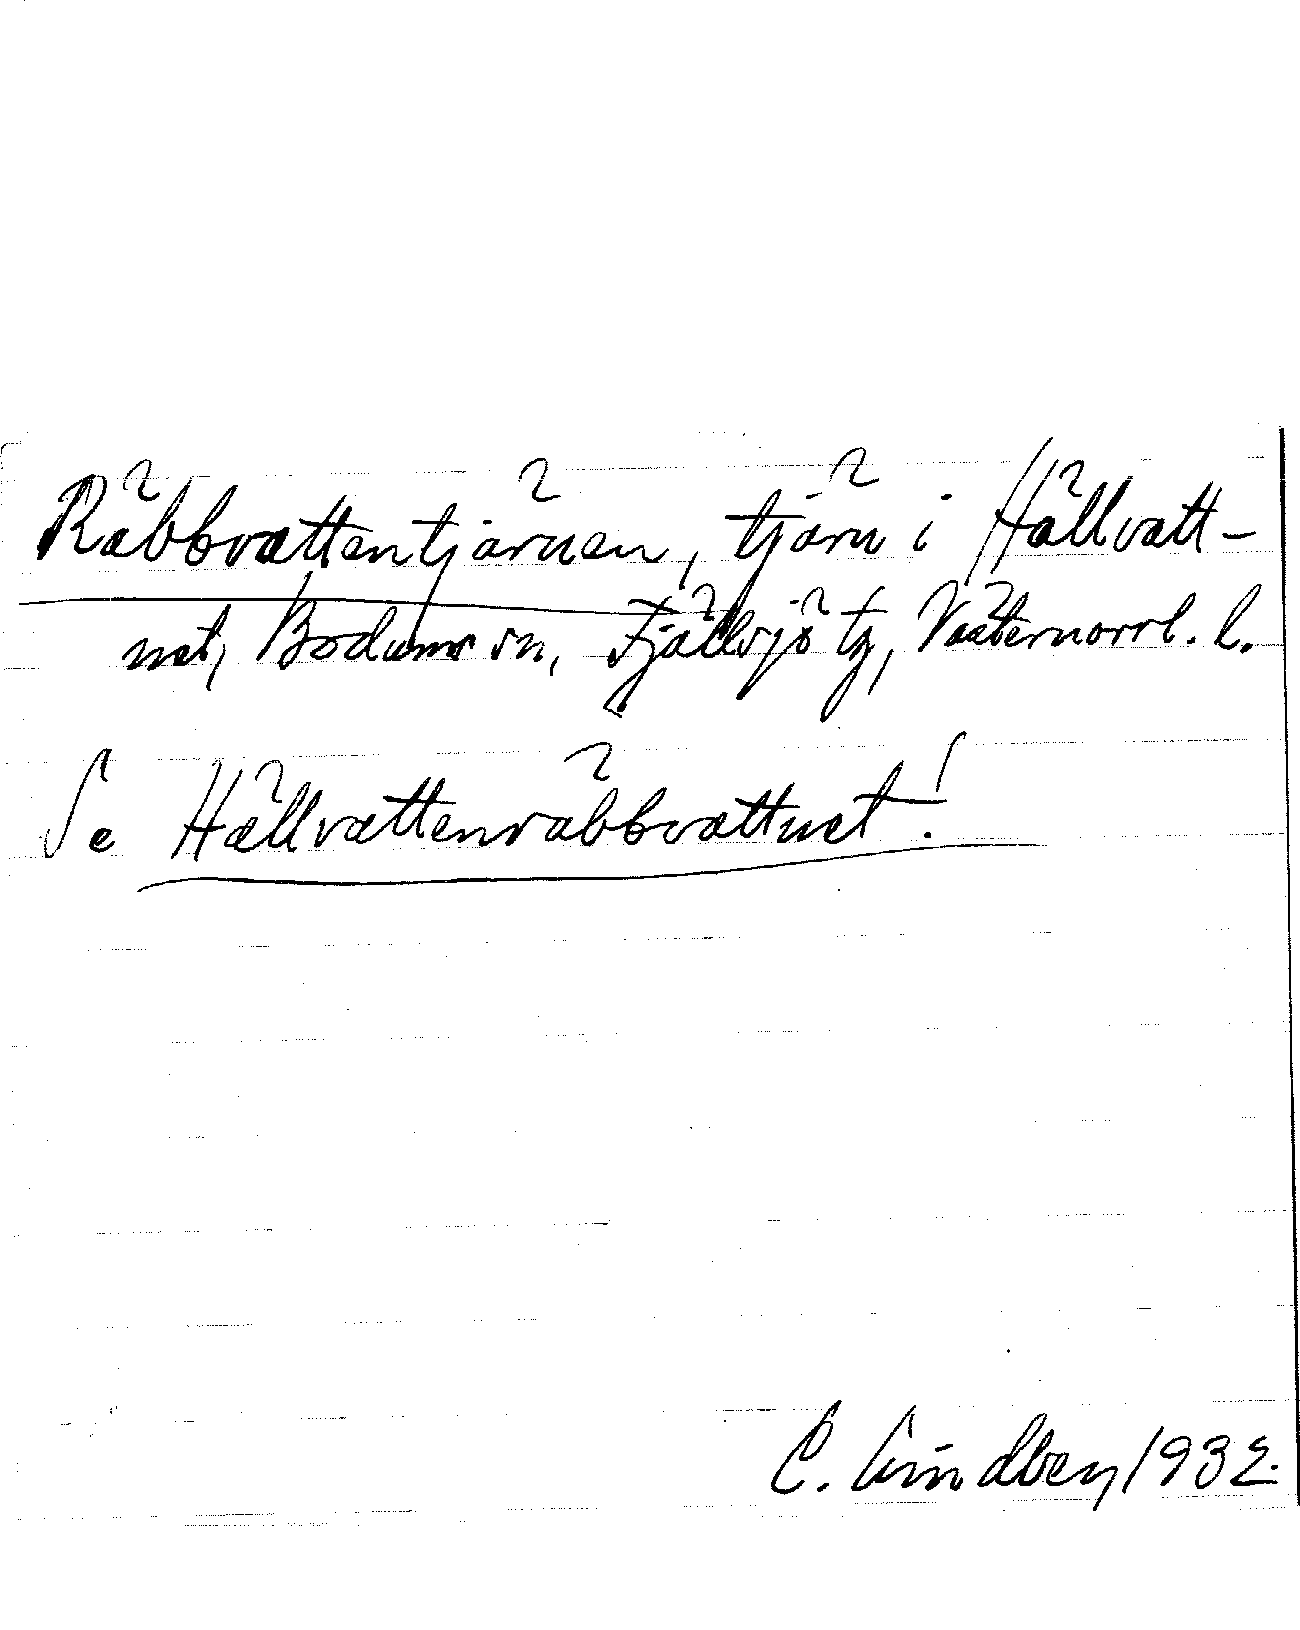 Räbbvattentjärnen, tjärn i Hällvatt-
net, Bodums sn, Fjällsjö tg, Västernorrl. l.
Se Hällvattenräbbvattnet!
C. Lindberg 1932.